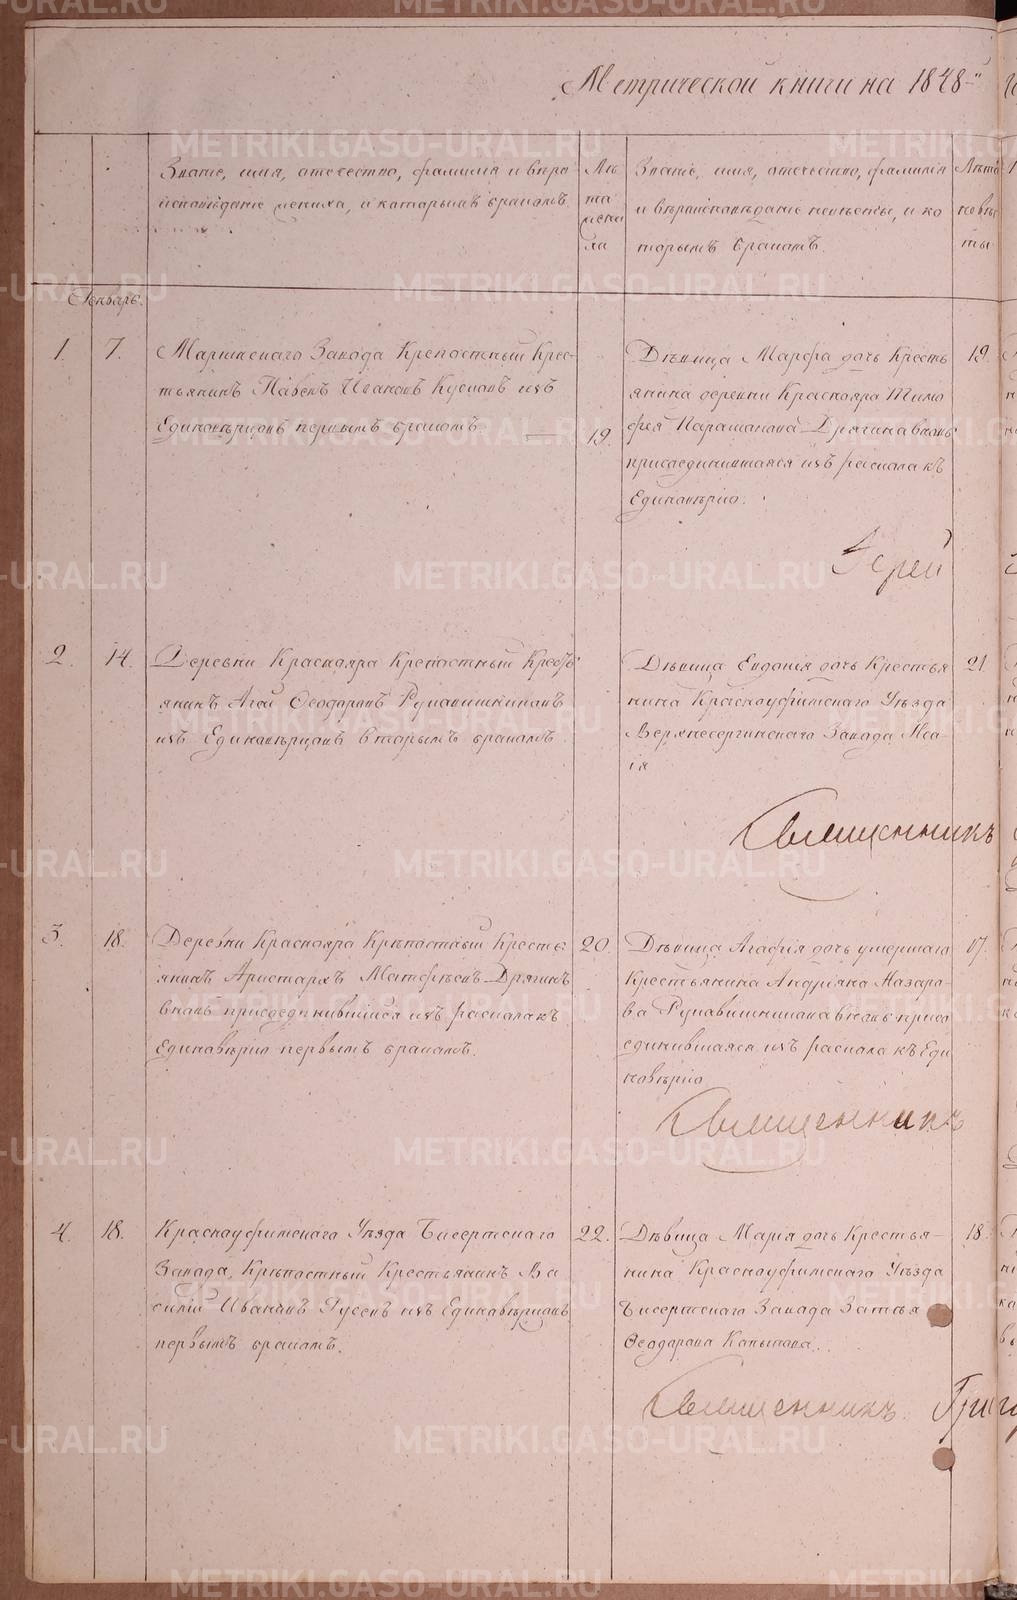 Метрической книги на 1848-й
Званіе, имя, отечество, фамилія и вѣро
исповѣданіе жениха, и которымъ бракомъ.
Лѣ
та
жени
ха
Званіе, имя, отечество, фамилія
и вѣроисповѣданіе невѣсты, и ко
торымъ бракомъ.
Лѣта
невѣс
ты
Генварь.
1. 7. Маріинскаго Завода Крепостный Крес-
тьянинъ Павелъ Ивановъ
Единовѣрцовъ первымъ бракомъ
19.
Дѣвица Марфа дочь Кресть
янина деревни Краснояра Тимо
фея Парамонова Дрягина вновь
присоединившаяся изъ раскола къ
Единовѣрію.
19.
Іерей
2. 14. Деревни Краснояра Крепостный Крестъ
янинъ Агей Ѳеодоровъ Рукавишниковъ
изъ Единовѣрцовъ вторымъ бракомъ
Дѣвица Евдокія дочь Крестья
нина Красноуфимскаго Уѣзда
Верхнесергинскаго Завода Иса-
ія
21
Священникъ
3. 18. Деревни Краснояра Крѣпостный Кресть-
янинъ Аристархъ Матфѣевъ Дрягинъ
вновь присоединившійся изъ раскола къ
Единовѣрію первымъ бракомъ.
20.
Дѣвица Агафія дочь умершаго
Крестьянина Андріяна Назаро-
ва Рукавишникова вновь присо
единившаяся изъ раскола къ Еди
новѣрію
17.
Священникъ
4. 18. Красноуфимскаго Уѣзда Бисертскаго
Завода, Крѣпостный Крестьянинъ Ва
силій Ивановъ Гусевъ изъ Единовѣрцовъ
первымъ бракомъ.
22.
Дѣвица Марія дочь Крестья-
нина Красноуфимскаго Уѣзда
Бисертскаго Завода
Ѳеодорова Копылова.
18.
Священникъ Григо
METRIKI.GASO-URAL.RU